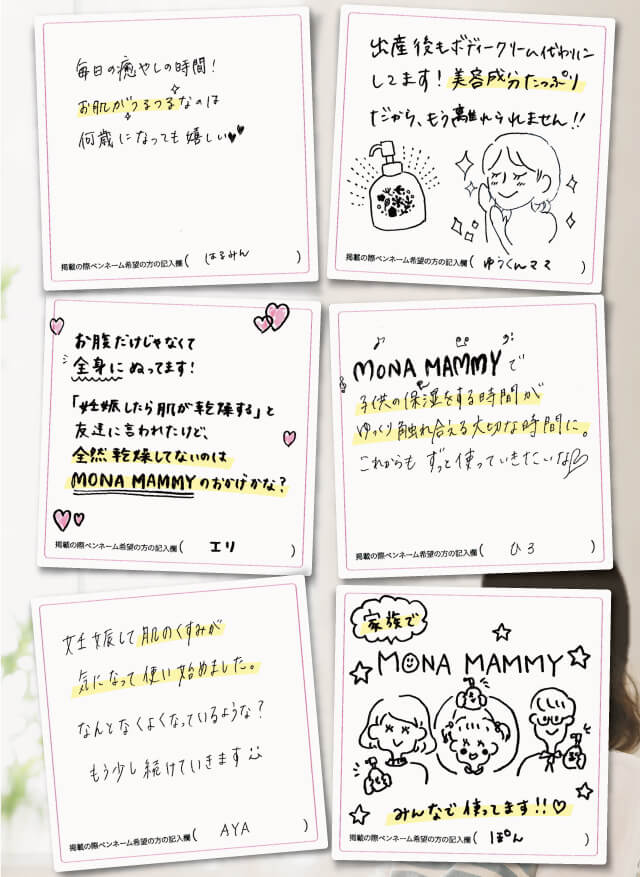 毎日の癒やしの時間!
お肌がうるつるなのは
何歳になっても嬉しい♥♥
掲載の際ペンネーム希望の方の記入欄( はるみん )
出産後もボディークリーム代わりに
してます! 美容成分たっぷり
だから、もう離れられません!!
掲載の際ペンネーム希望の方の記入欄( ゆうくんママ )
お腹だけじゃなくて
全身にぬってます!
「妊娠したら肌が乾燥する」と
友達に言われたけど、
全然乾燥してないのは
MONA MAMMYのおかげかな?
掲載の際ペンネーム希望の方の記入欄( エリ )
MONA MAMMYで
子供の保湿をする時間が
ゆっくり触れ合える大切な時間に。
これからも ずっと使っていきたいな♡
掲載の際ペンネーム希望の方の記入欄( ひろ )
妊娠して肌のくすみが
気になって使い始めました。
なんとなくよくなっているような?
もう少し続けていきます
掲載の際ペンネーム希望の方の記入欄( AYA )
家族で
MONA MAMMY
みんなで使ってます!!♡
掲載の際ペンネーム希望の方の記入欄( ぽん )